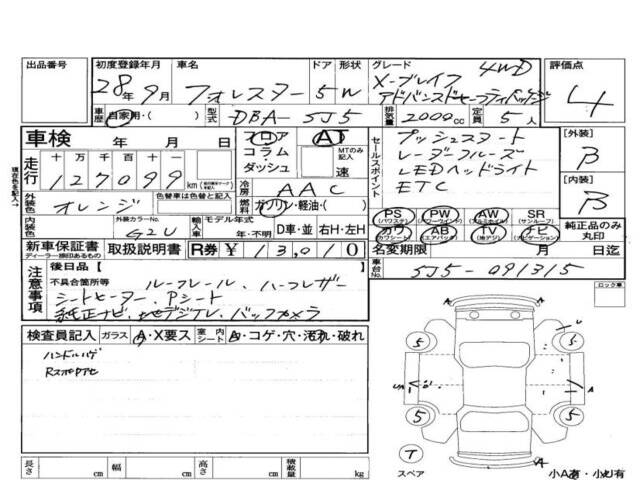 出品番号
初度登録年月
28年9月
車名
フォレスター
ドア
5
形状
W
グレード
4WD
X-ブレイク
アドバンスドセーフティパッケージ
評価点
4
車歴
自家用・( )
型式
DBA-SJ5
排気量
2000cc
定員
5人
車検 年 月 日
フロア
コラム・
ダッシュ
AT
MTのみ記入
速
セールスポイント
プッシュスタート
レーダークルーズ
LEDヘッドライト
ETC
[外装]
B
[内装]
B
→現在色を記入→
走行
十 万 千 百 十 一
127099
km
冷房
AAC
外装色
オレンジ
色替車は色替え前
燃料
ガソリン・軽油・( )
内装色
外装カラーNo.
G2U
輸入車
モデル年式
年・不明
D車・並 右H・左H
PS (パワステ)
PW (パワーウインド)
AW (アルミホイル)
SR (サンルーフ)
カワ (カワシート)
AB (エアバック)
TV (地デジ)
ナビ (ナビゲーション)
純正品のみ
丸印
新車保証書
ディーラー捺印あるもの
取扱説明書
R券
¥13,010
名変期限 月 日迄
車台No.
SJ5-091315
注意事項
後日品【 】
不具合箇所等
ルーフレール、ハーフレザー
シートヒーター、Pシート
純正ナビ、地デジTV、バックカメラ
ロック車
検査員記入
ガラス
A・X要ス
室内シート
A・コゲ・穴・汚れ・破れ
ハンドルハゲ
5
5
5
5
A
A
T
スペア
A
小A有・小U有
長さ cm 幅 cm 高さ cm 積載量 kg